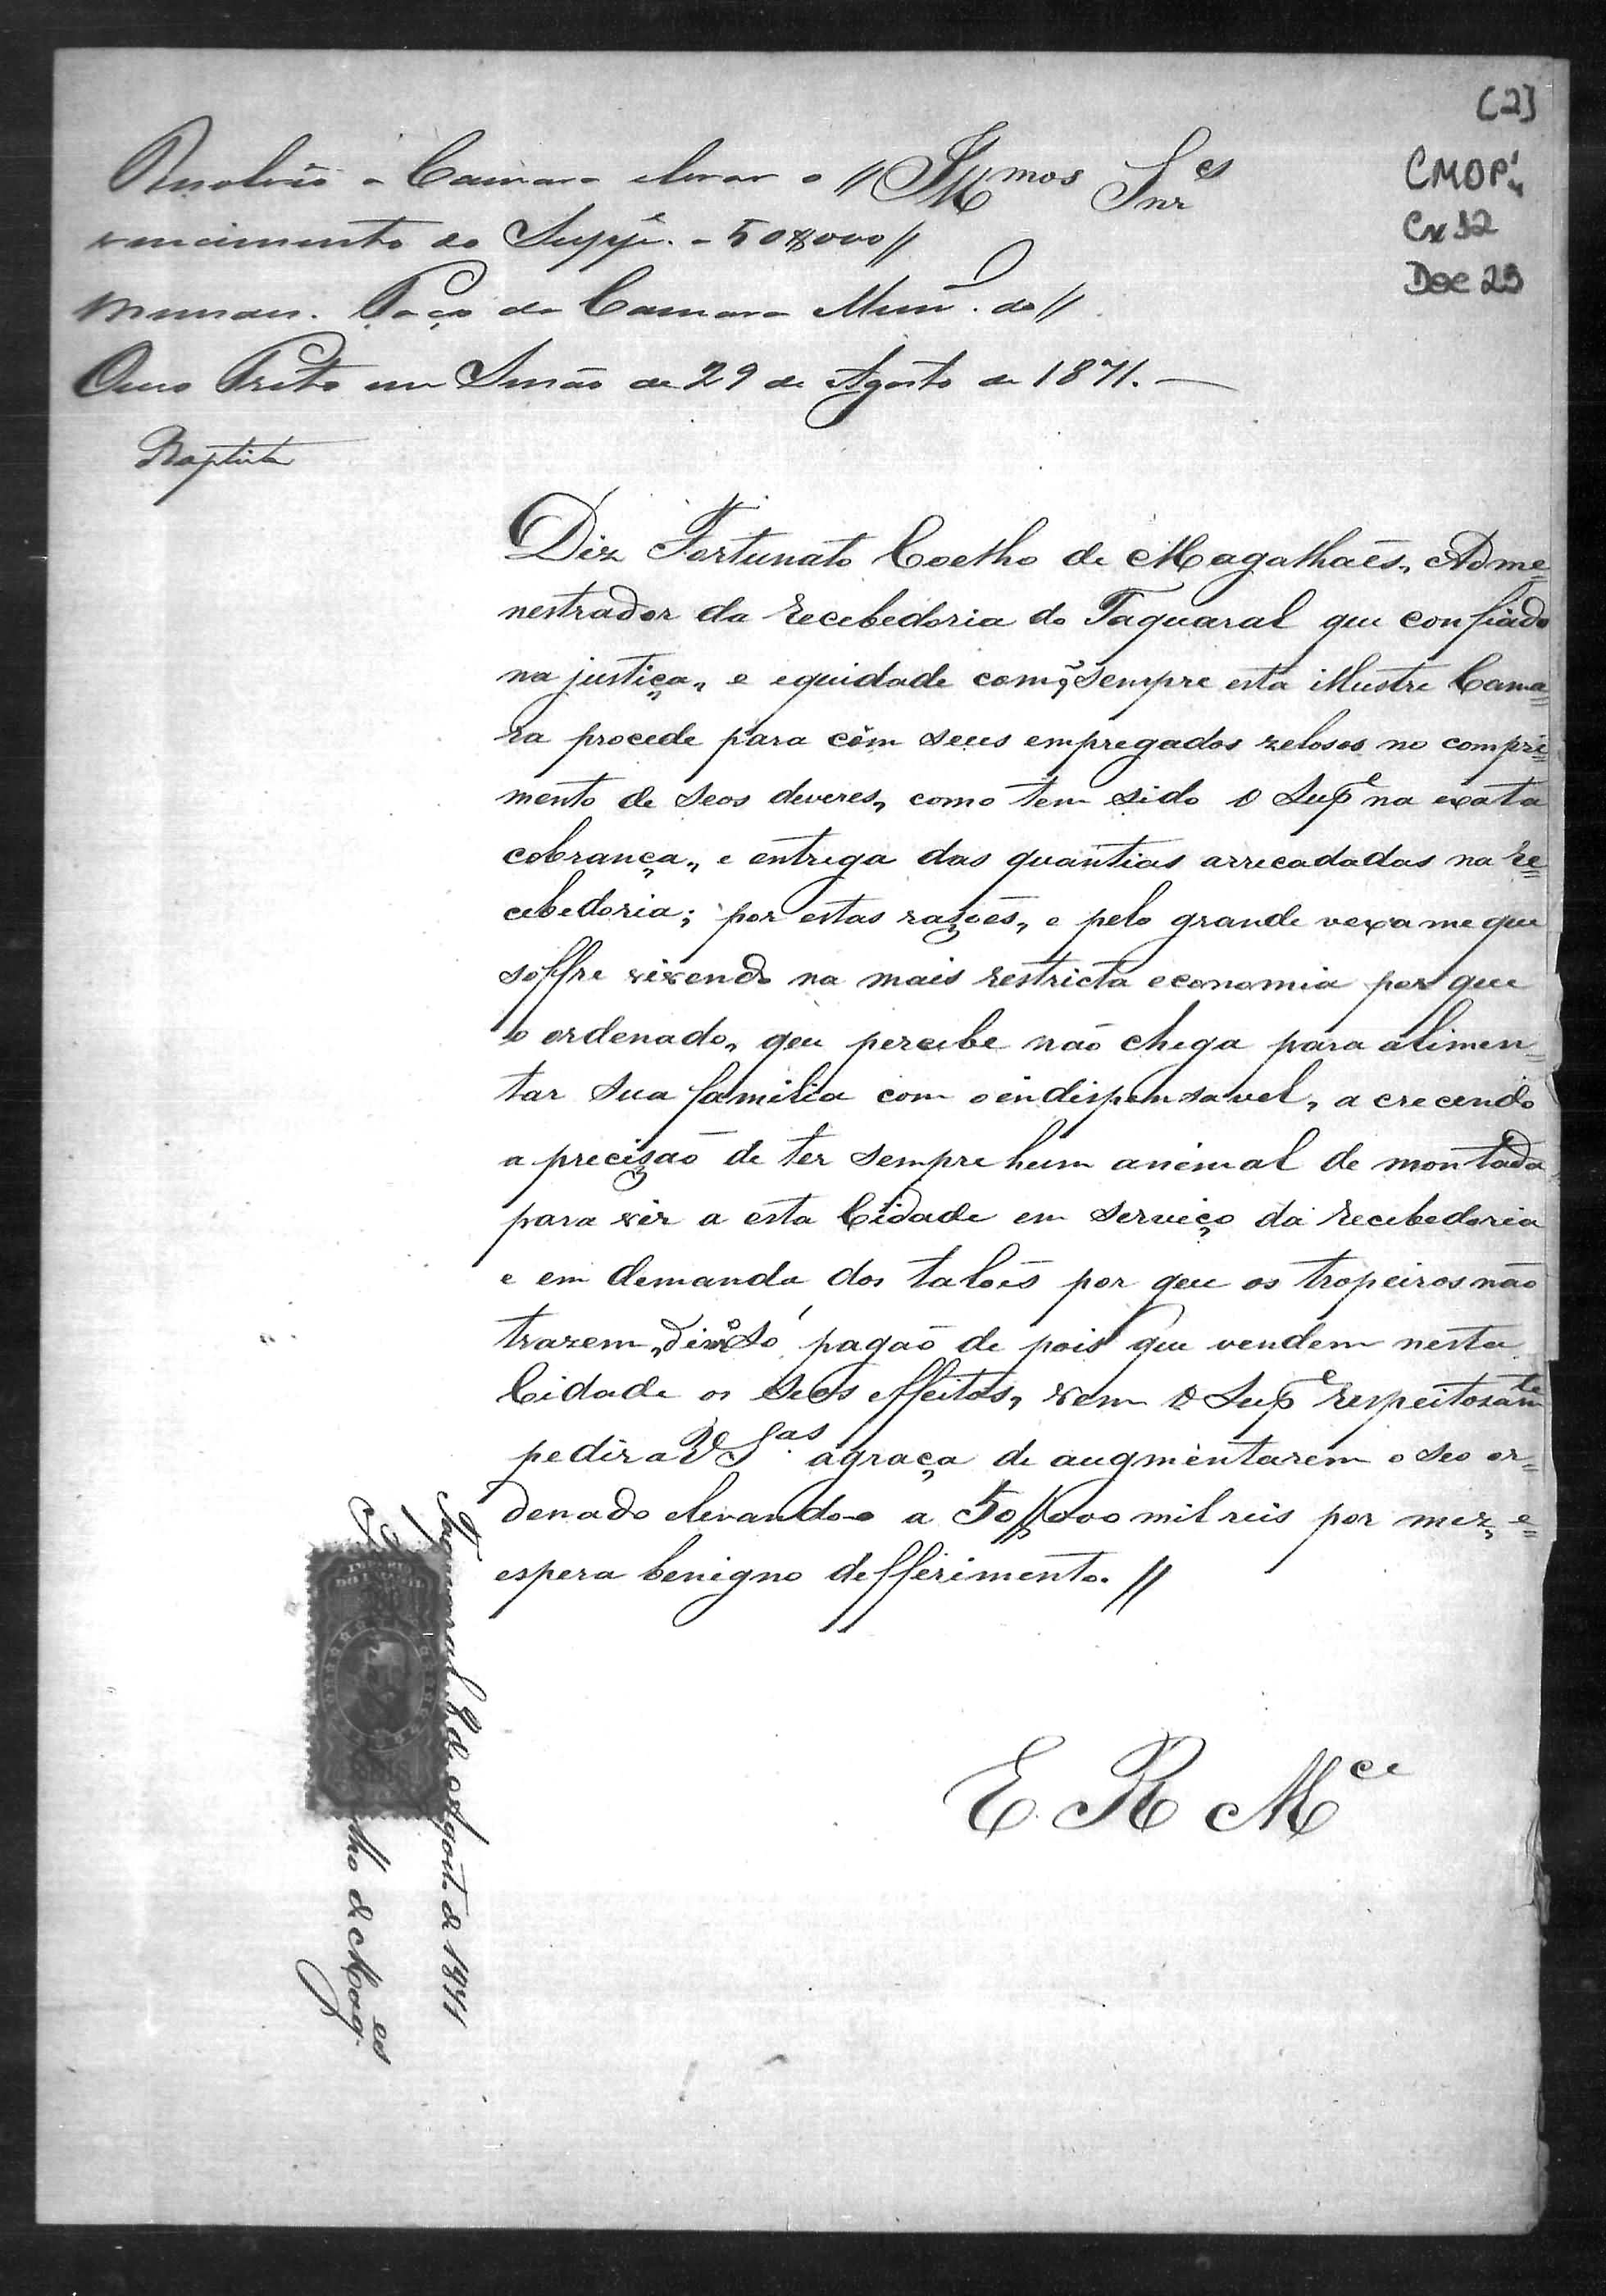 [2]
CMOP.
Cx 92
Doc 23
Illmos Snres
Resolveo a Camara elevar o
vencimento do Suppe. a 50$000 //
mensaes. Paço da Camara Munal. do //
Ouro Preto em Sessão de 29 de Agosto de 1871. —
Baptista
Diz Fortunato Coelho de Magalhaẽs, Adme=
nestrador da recebedoria do Taquaral que confiado
na justiça, e equidade com q̃ sempre esta illustre Cama=
ra procede para com seus empregados zelosos no compri=
mento de seos deveres, como tem sido o Supe na exata
cobrança, e entrega das quantias arrecadadas na re=
cebedoria; por estas razoẽs, e pelo grande vexame que
soffre vivendo na mais restricta economia por que
o ordenado, que percebe não chega para alimen=
tar sua familia com o indispensavel, a crecendo
a precizão de ter sempre hum animal de montada
para vir a esta Cidade em serviço da recebedoria
e em demanda dos taloẽs por que os tropeiros não
trazem, dinro só pagão de pois que vendem nesta
Cidade os seos effeitos, vem o Supe respeitosamte
pedir a VSas. a graça de augmentarem o seo or=
denado elevando-o a 50$000 mil reis por mez, e=
espera benigno defferimento. //
E R Mce
Taquaral de Agosto de 1871
lho de Mages
IMPERIO
DO BRAZIL